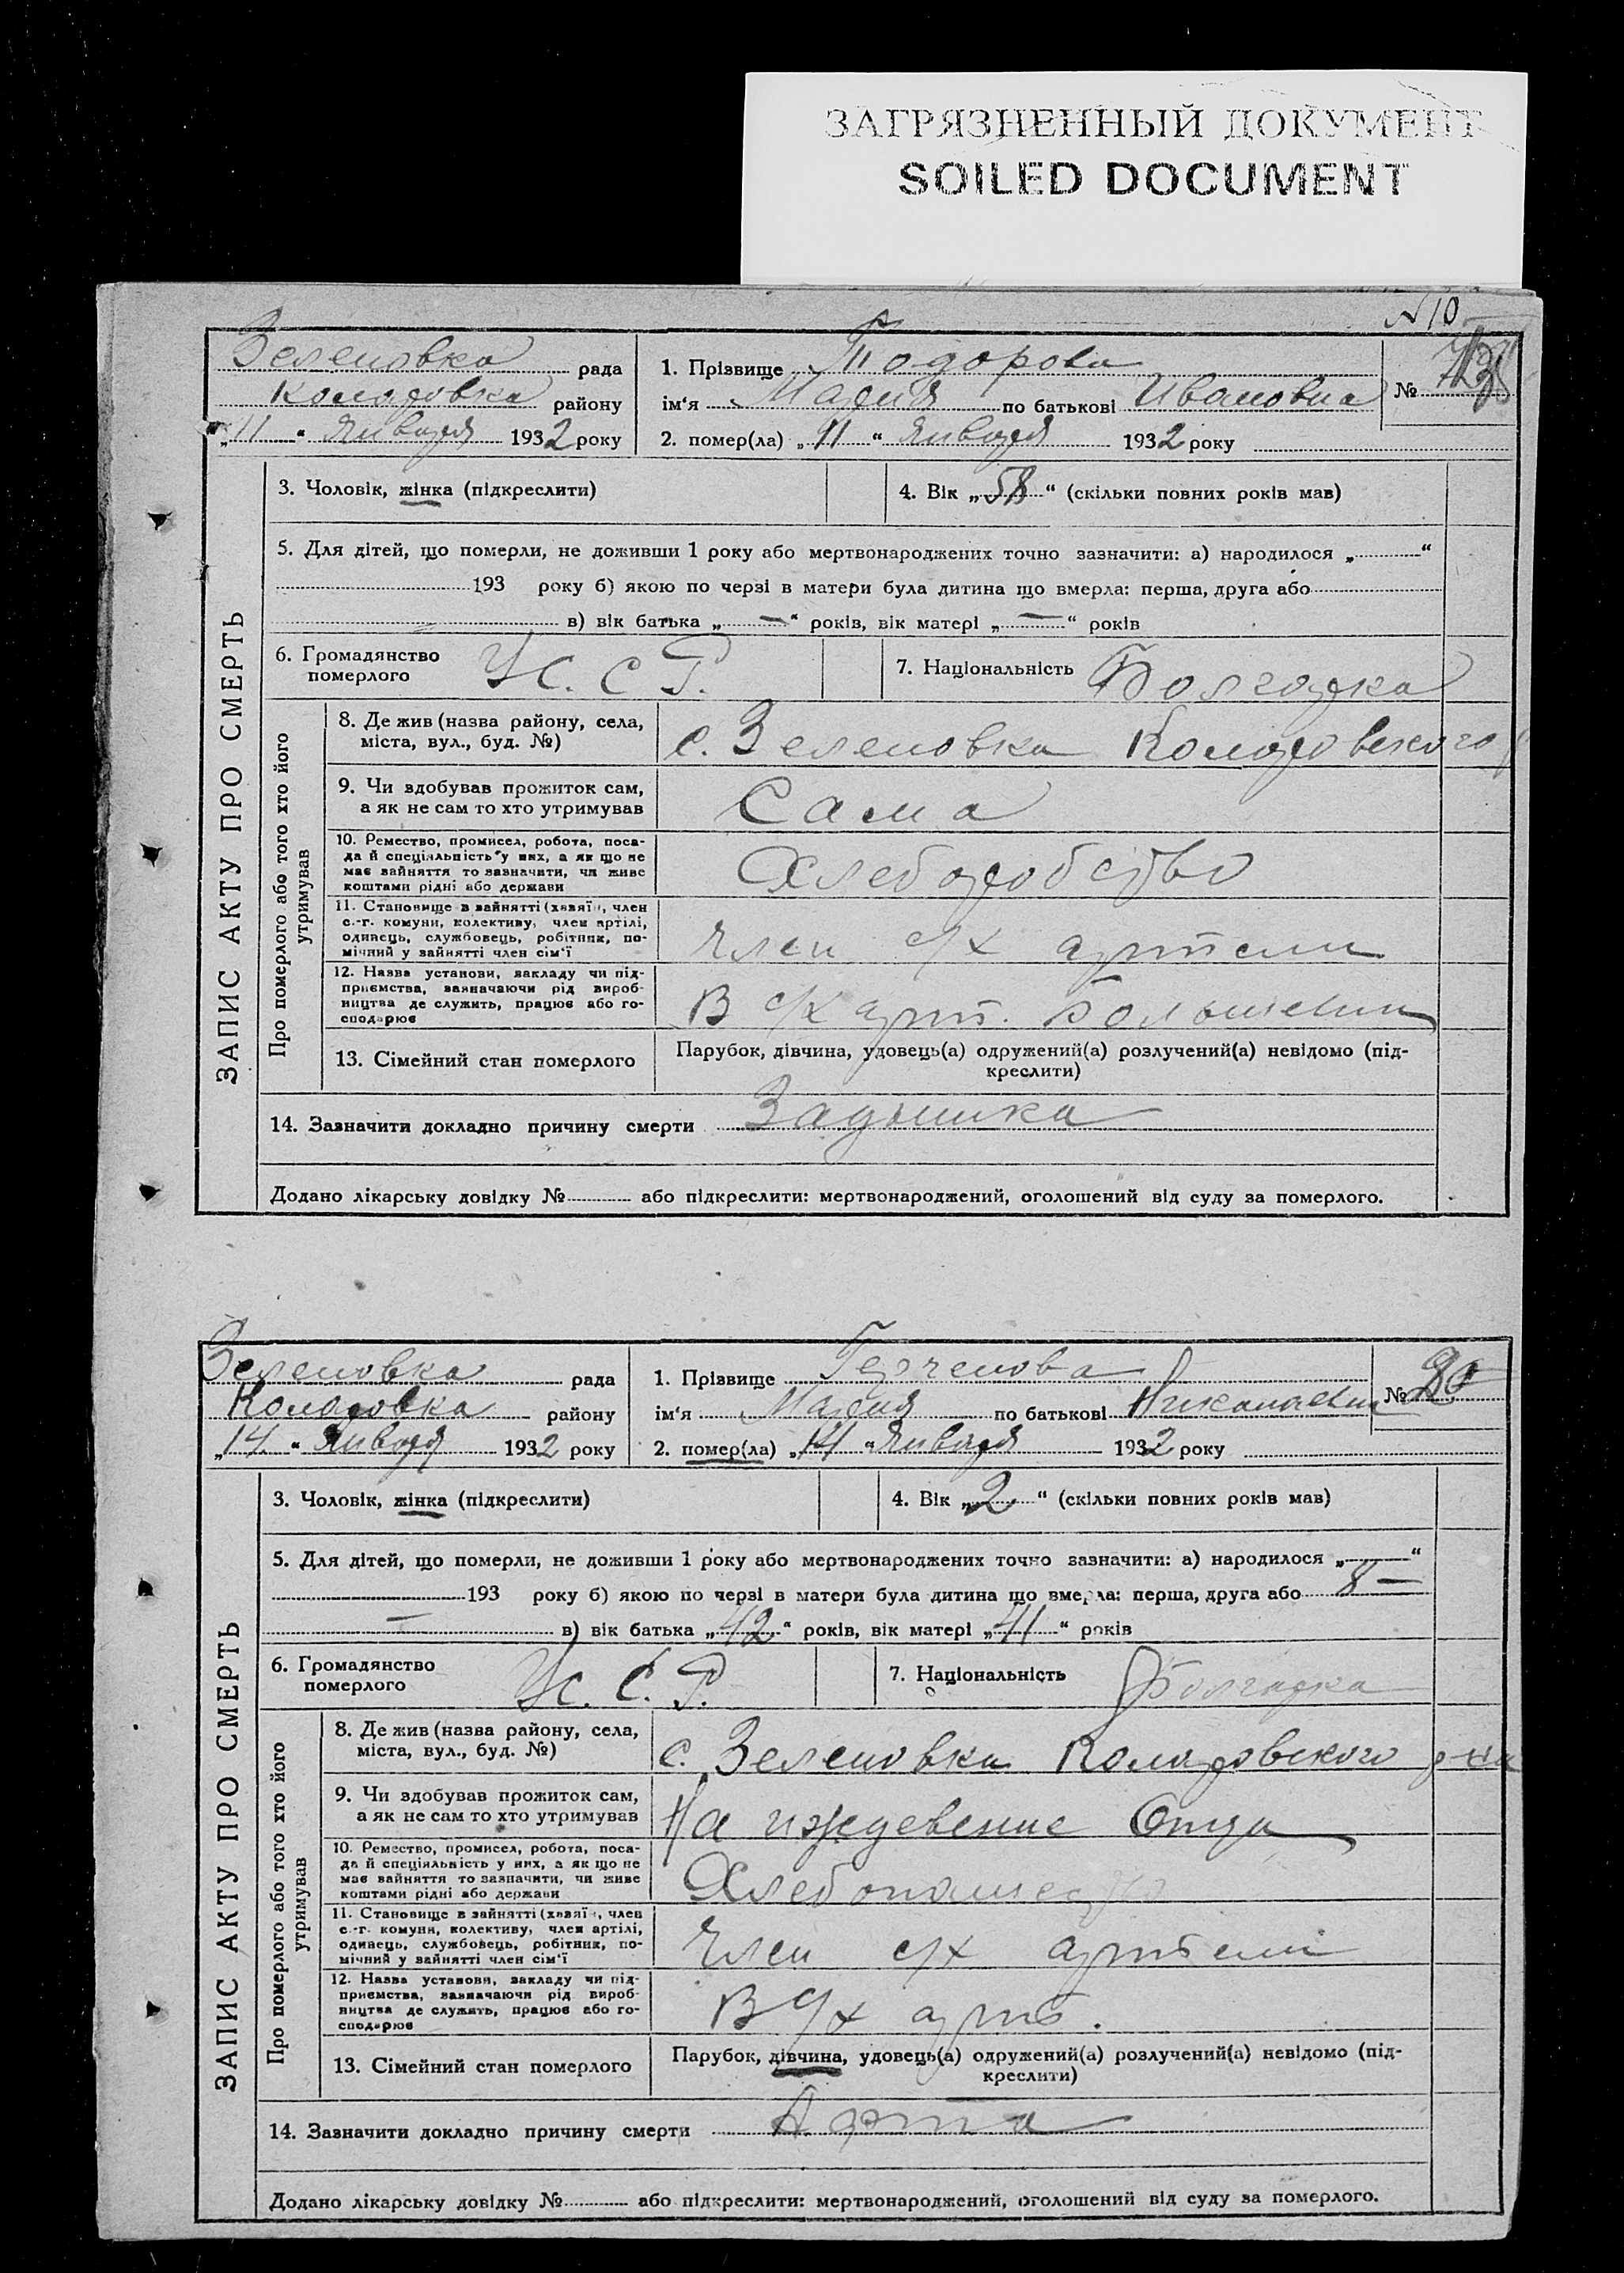 ЗАГРЯЗНЕННЫЙ ДОКУМЕНТ
SOILED DOCUMENT
N 10
Зеленовка рада
Коларовка району
„11“ Января 1932 року
1. Прізвище Тодорова
ім'я Мария по батькові Ивановна
№
2. помер(ла) „11“ Января 1932 року
ЗАПИС АКТУ ПРО СМЕРТЬ
3. Чоловік, жінка (підкреслити)
4. Вік „58“ (скільки повних років мав)
5. Для дітей, що померли, не доживши 1 року або мертвонароджених точно зазначити: а) народилося „ “
193 року б) якою по черзі в матери була дитина що вмерла: перша, друга або
в) вік батька „—“ років, вік матері „—“ років
6. Громадянство
померлого
У.С.С.Р.
7. Національність Болгарка
Про померлого або того хто його
утримував
8. Де жив (назва району, села,
міста, вул., буд. №)
с. Зеленовка Коларовского
9. Чи здобував прожиток сам,
а як не сам то хто утримував
Сама
10. Ремество, промисел, робота, поса-
да й спеціяльність у них, а як що не
має зайняття то зазначити, чи живе
коштами рідні або держави
Хлеборобство
11. Становище в зайнятті (хазяїн, член
с.-г. комуни, колективу, член артілі,
одинець, службовець, робітник, по-
мічний у зайнятті член сім'ї
член с/х артели
12. Назва установи, закладу чи під-
приємства, зазначаючи рід вироб-
ництва де служить, працює або го-
сподарює
В с/х арт. Большевик
13. Сімейний стан померлого
Парубок, дівчина, удовець(а) одружений(а) розлучений(а) невідомо (під-
креслити)
14. Зазначити докладно причину смерти Задышка
Додано лікарську довідку № або підкреслити: мертвонароджений, оголошений від суду за померлого.
Зеленовка рада
Коларовка району
„14“ Января 1932 року
1. Прізвище Герченова
ім'я Мария по батькові Николаевна
№
2. помер(ла) „14“ Января 1932 року
ЗАПИС АКТУ ПРО СМЕРТЬ
3. Чоловік, жінка (підкреслити)
4. Вік „2“ (скільки повних років мав)
5. Для дітей, що померли, не доживши 1 року або мертвонароджених точно зазначити: а) народилося „—“
193 року б) якою по черзі в матери була дитина що вмерла: перша, друга або 8 —
— в) вік батька „42“ років, вік матері „41“ років
6. Громадянство
померлого
У.С.С.Р.
7. Національність Болгарка
Про померлого або того хто його
утримував
8. Де жив (назва району, села,
міста, вул., буд. №)
с. Зеленовка Коларовского р-на
9. Чи здобував прожиток сам,
а як не сам то хто утримував
На иждевение Отца
10. Ремество, промисел, робота, поса-
да й спеціяльність у них, а як що не
має зайняття то зазначити, чи живе
коштами рідні або держави
Хлебопашество
11. Становище в зайнятті (хазяїн, член
с.-г. комуни, колективу, член артілі,
одинець, службовець, робітник, по-
мічний у зайнятті член сім'ї
член с/х артели
12. Назва установи, закладу чи під-
приємства, зазначаючи рід вироб-
ництва де служить, працює або го-
сподарює
В с/х арт.
13. Сімейний стан померлого
Парубок, дівчина, удовець(а) одружений(а) розлучений(а) невідомо (під-
креслити)
14. Зазначити докладно причину смерти
Додано лікарську довідку № або підкреслити: мертвонароджений, оголошений від суду за померлого.